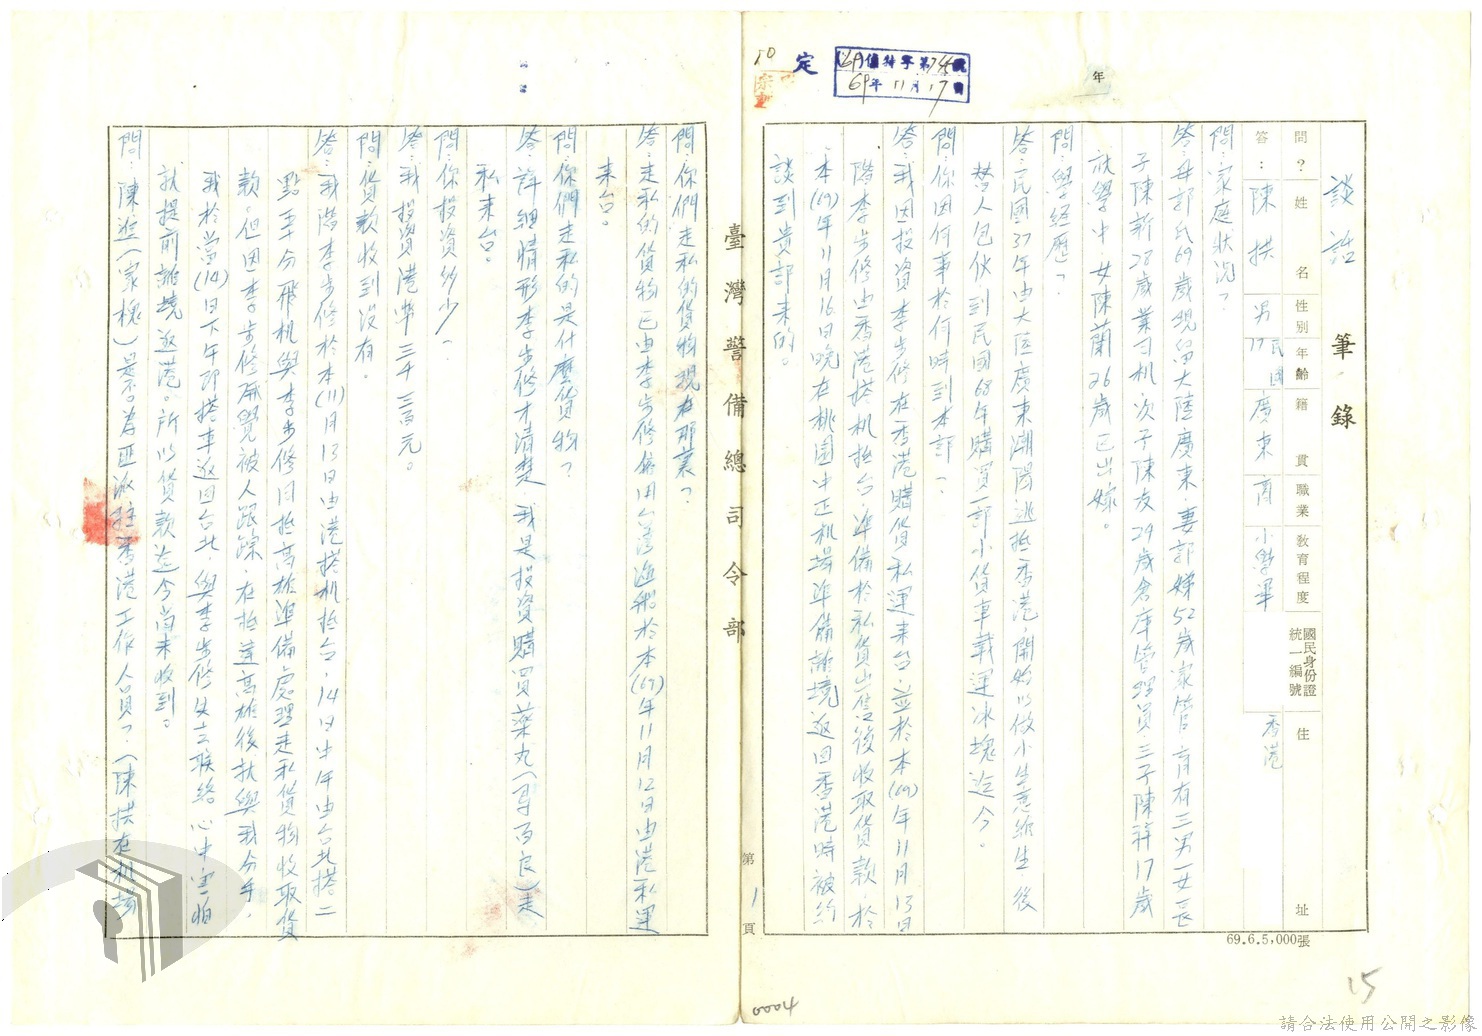 談話筆錄
問？姓名 性別 年齡 籍貫 職業 教育程度 國民身份證統一編號 住址
答：陳拱 男 民國17 廣東 商 小學畢 香港
問：家庭狀況？
答：母郭氏69歲現留大陸廣東，妻郭嬋52歲家管，育有三男一女長
子陳新28歲業司机，次子陳友24歲倉庫管理員三子陳祥17歲
就學中，女陳蘭26歲已出嫁。
問：學經歷？
答：民國37年由大陸廣東潮陽逃抵香港，開始以做小生意維生後
替人包伙到民國68年購買一部小貨車載運冰塊迄今。
問：你因何事於何時到本部？
答：我因投資李步修在香港購貨私運來台，並於本(69)年11月13日
隨李步修由香港搭机抵台，準備於私貨出售後收取貨款，於
本(69)年11月16日晚在桃園中正机場準備離境返回香港時被約
談到貴部來的。
臺灣警備總司令部
第1頁
69.6.5,000張
問：你們走私的貨物現在那裏？
答：走私的貨物已由李步修僱用台灣漁船於本(69)年11月12日由港私運
來台。
問：你們走私的是什麼貨物？
答：詳細情形李步修才清楚，我是投資購買藥丸走
私來台。
問：你投資多少？
答：我投資港幣三千三百元。
問：貨款收到沒有。
答：我隨李步修於本(11)月13日由港搭机抵台，14日中午由台北搭二
點五十分飛机與李步修同抵高雄準備處理走私貨物收取貨
款，但因李步修發覺被人跟踪，在抵達高雄後就與我分手，
我於當(14)日下午即搭車返回台北，與李步修失去聯絡心中害怕
就提前離境返港。所以貨款迄今尚未收到。
問：陳進(家槐)是否為匪派駐香港工作人員？(陳拱在机場
定
69年11月17日
年
50
0004
15
請合法使用公開之影像